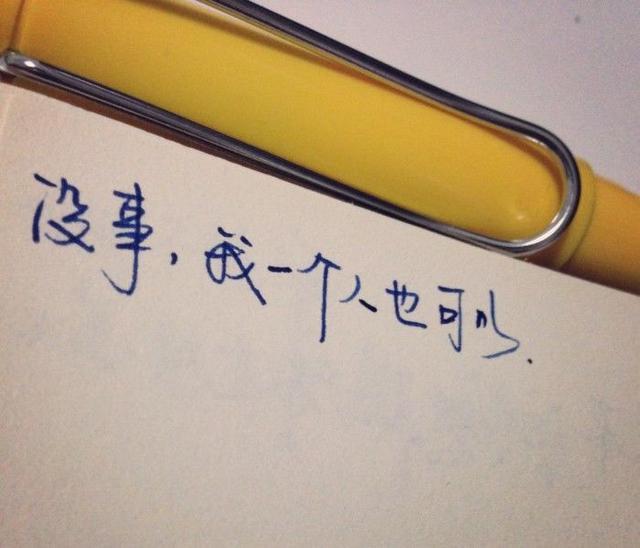 没事,我一个人也可以.